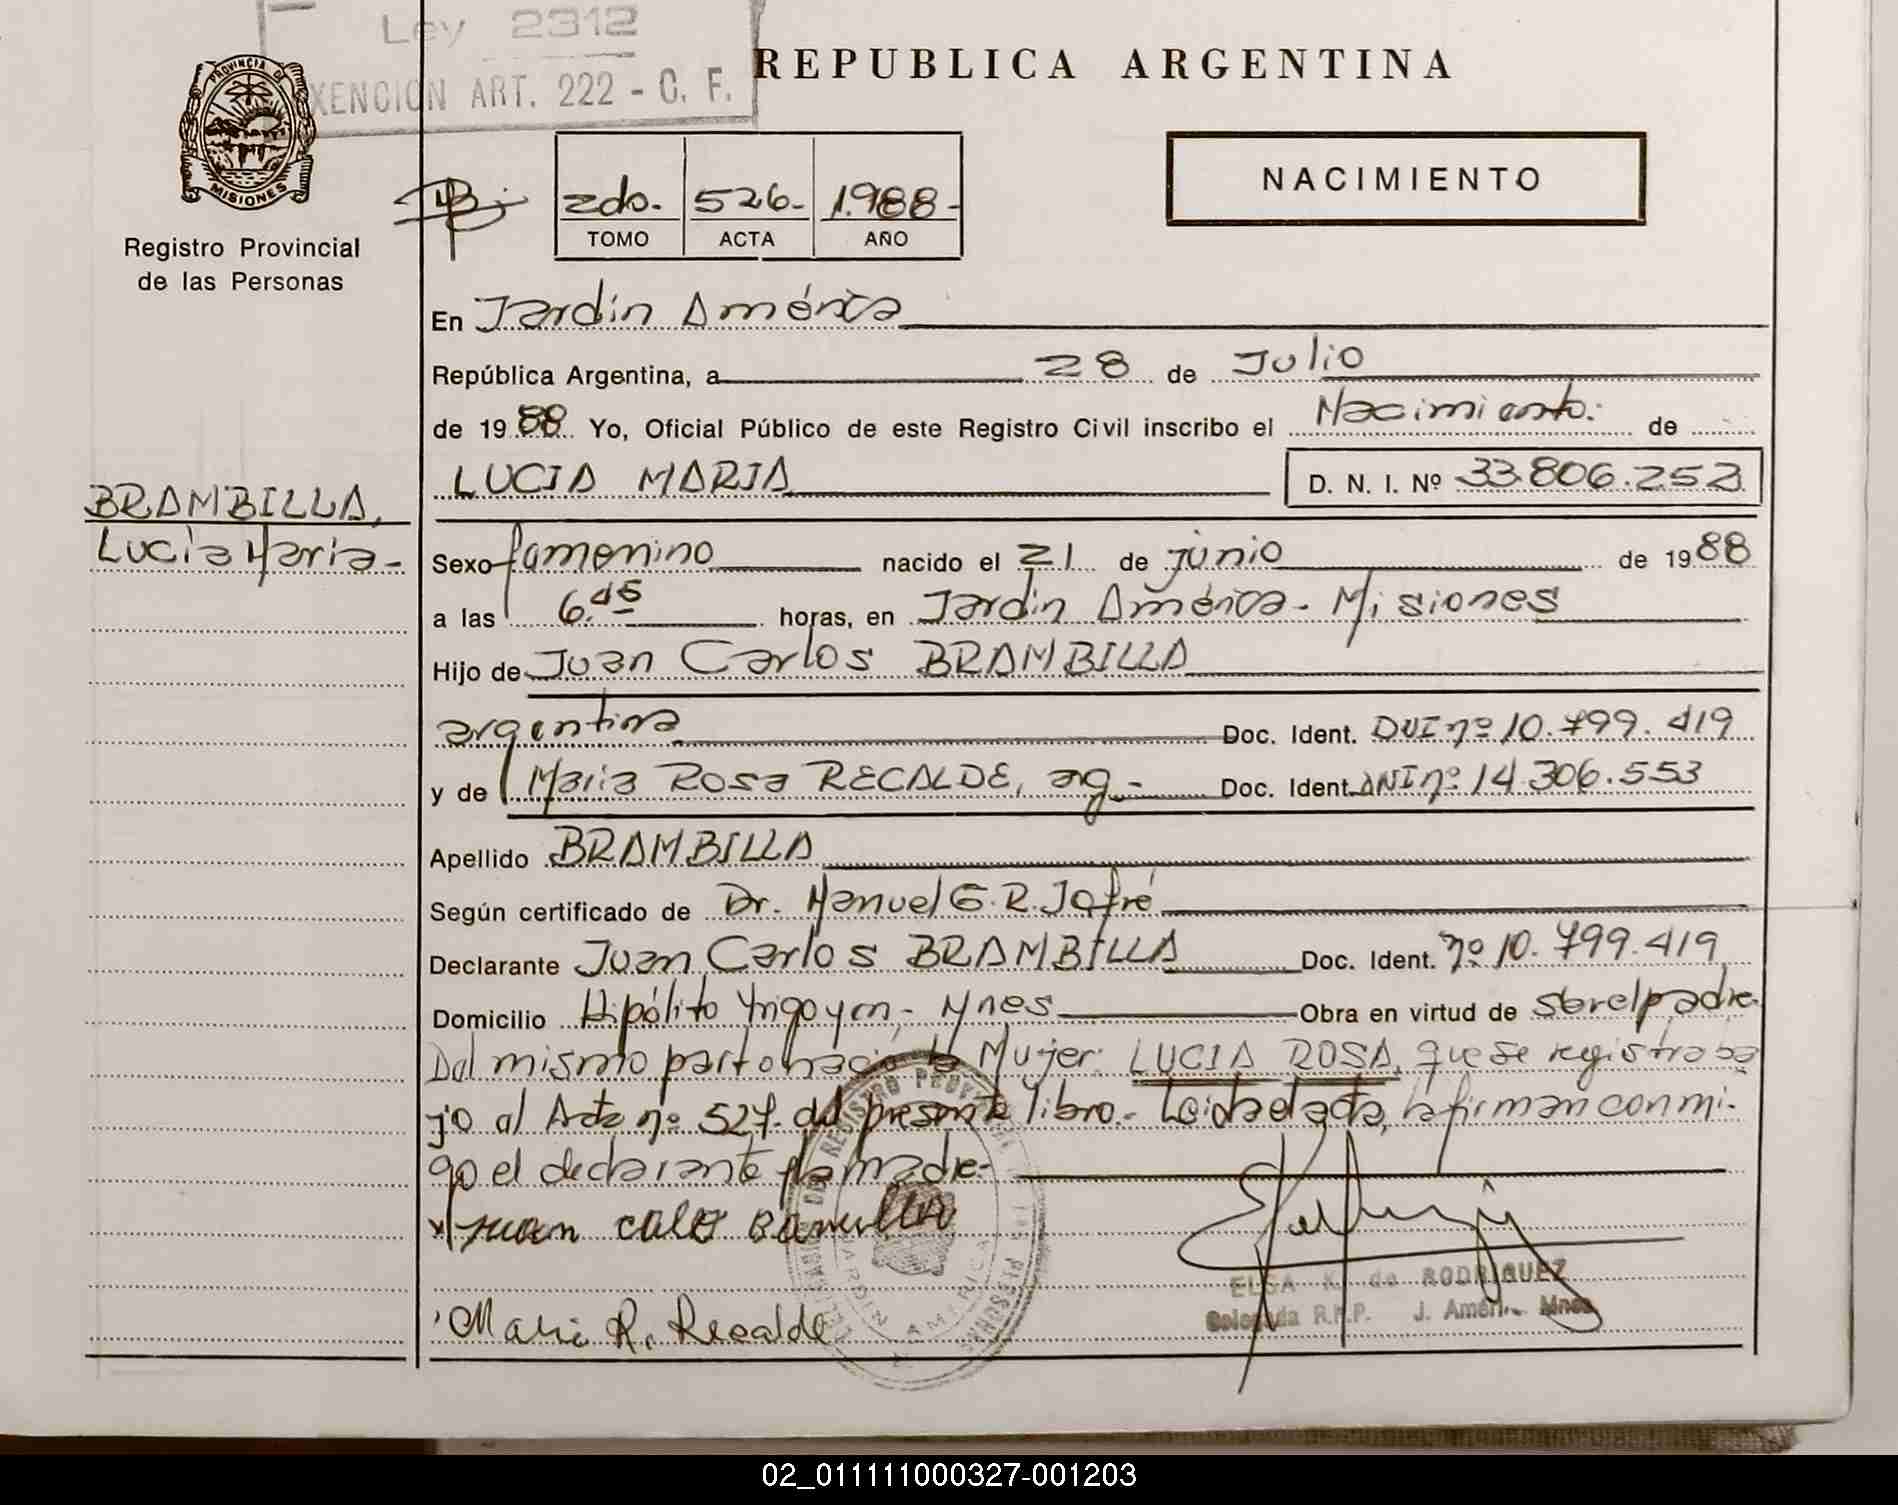 Ley 2312
XENCION ART. 222 - C. F.
REPUBLICA ARGENTINA
PROVINCIA D
MISIONES
Registro Provincial
de las Personas
2do. 526- 1.988-
TOMO ACTA AÑO
NACIMIENTO
En Jardín América
República Argentina, a 28 de Julio
de 19 88 Yo, Oficial Público de este Registro Civil inscribo el Nacimiento. de
LUCIA MARIA D. N. I. Nº 33.806.252
BRAMBILLA,
Lucía María-
Sexo femenino nacido el 21 de junio de 19 88
a las 6.45 horas, en Jardín América- Misiones
Hijo de Juan Carlos BRAMBILLA
argentina Doc. Ident. DNI nº 10.799.419
y de María Rosa RECALDE, arg.- Doc. Ident. DNI nº 14.306.553
Apellido BRAMBILLA
Según certificado de Dr. Manuel G. R. Jofré
Declarante Juan Carlos BRAMBILLA Doc. Ident. nº 10.799.419
Domicilio Hipólito Yrigoyen- Mnes Obra en virtud de ser el padre.
Del mismo parto nació la Mujer: LUCIA ROSA, que se registra ba
jo al Acta nº 527. del presente libro.- Leída el acta, la firman conmi-
go el declarante y la madre-
Maria R. Recalde
ELSA K. de RODRIGUEZ
Delegada R.P.P. J. Améri. Mnes
JARDIN AMERICA
02_011111000327-001203